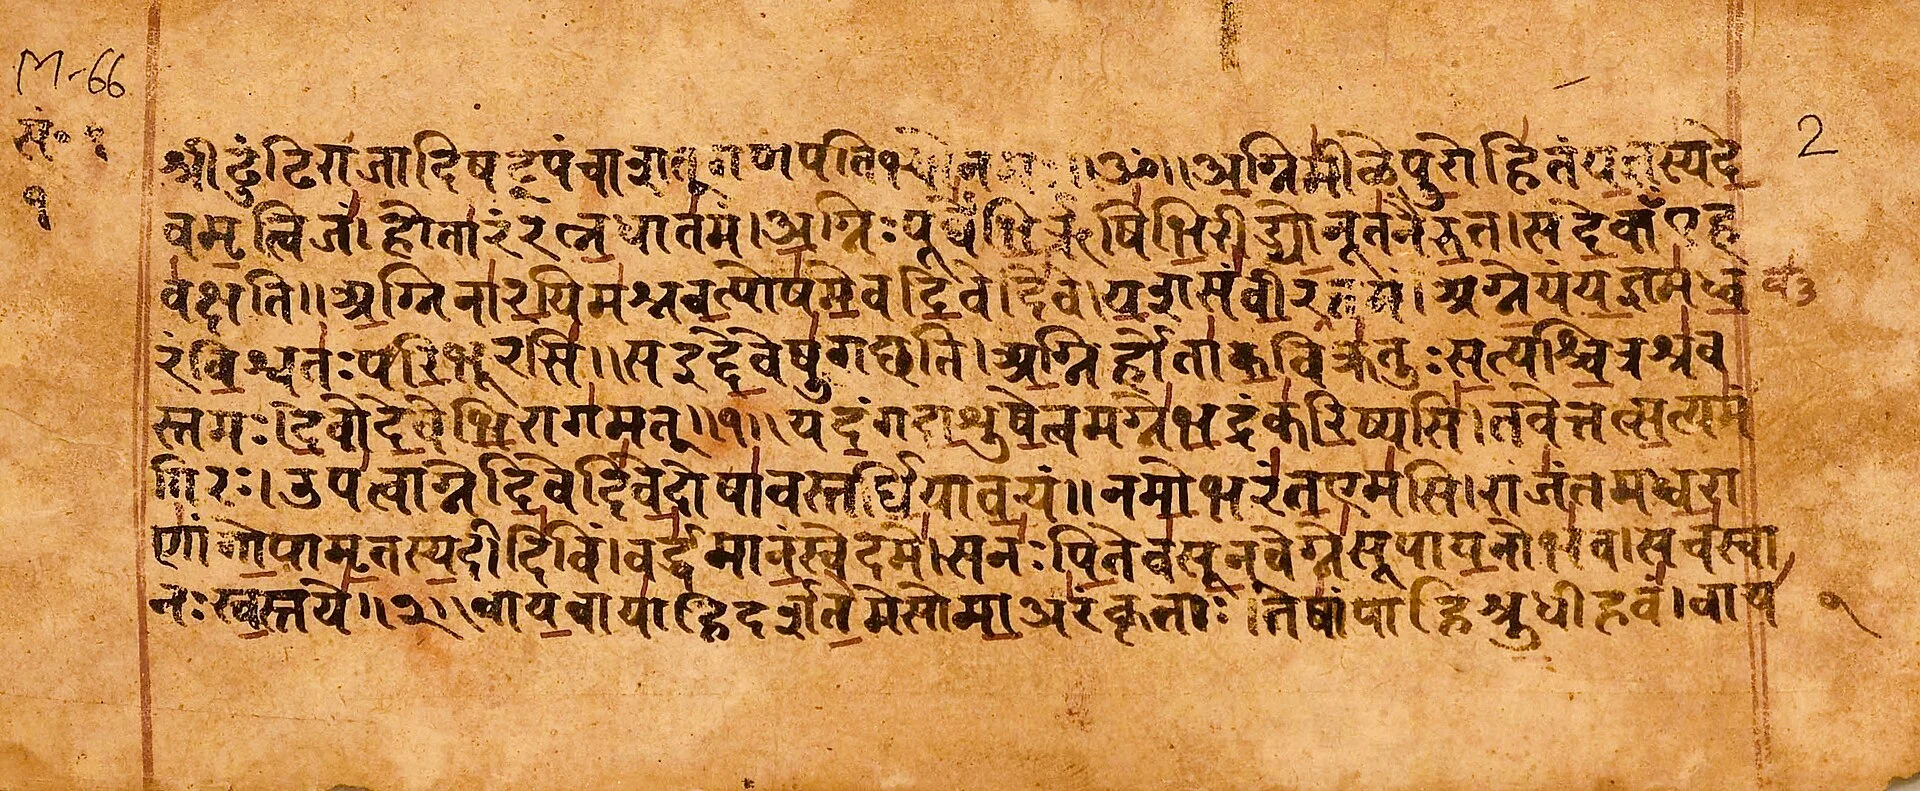 M-66
सं॰ १
१
2
श्रीढुंढिराजादिषट्पंचाशतुगणपतिभ्योनमः॥ॐ॥अग्निमीळेपुरोहितंयज्ञस्यदे
वमृत्विजं। होतारंरत्नधातमं।अग्निःपूर्वेभिर्ऋषिभिरीड्योनूतनैरुत।सदेवाँएह
वक्षति॥अग्निनारयिमश्नवत्पोषमेवदिवेदिवे।यशसंवीरवत्तमं।अग्नेयंयज्ञमध्व
रंविश्वतःपरिभूरसि॥सइद्देवेषुगछति।अग्निर्होताकविक्रतुःसत्यश्चित्रश्रव
स्तमः।देवोदेवेभिरागमत्॥१॥यदंगदाशुषेत्वमग्नेभद्रंकरिष्यसि।तवेत्तत्सत्यमं
गिरः।उपत्वाग्नेदिवेदिवेदोषावस्तर्धियावयं॥नमोभरंतएमसि।राजंतमध्वरा
णांगोपामृतस्यदीदिविं।वर्द्धमानंस्वेदमे।सनःपितेवसूनवेग्नेसूपायनोभव।सचस्वा
नःस्वस्तये॥२॥वायवायाहिदर्शतेमेसोमाअरंकृताः।तेषांपाहिश्रुधीहवं।वाय
१